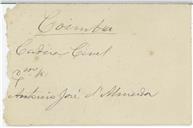 Coimbra
Cadeia Civil
Antonio José d'Almeida